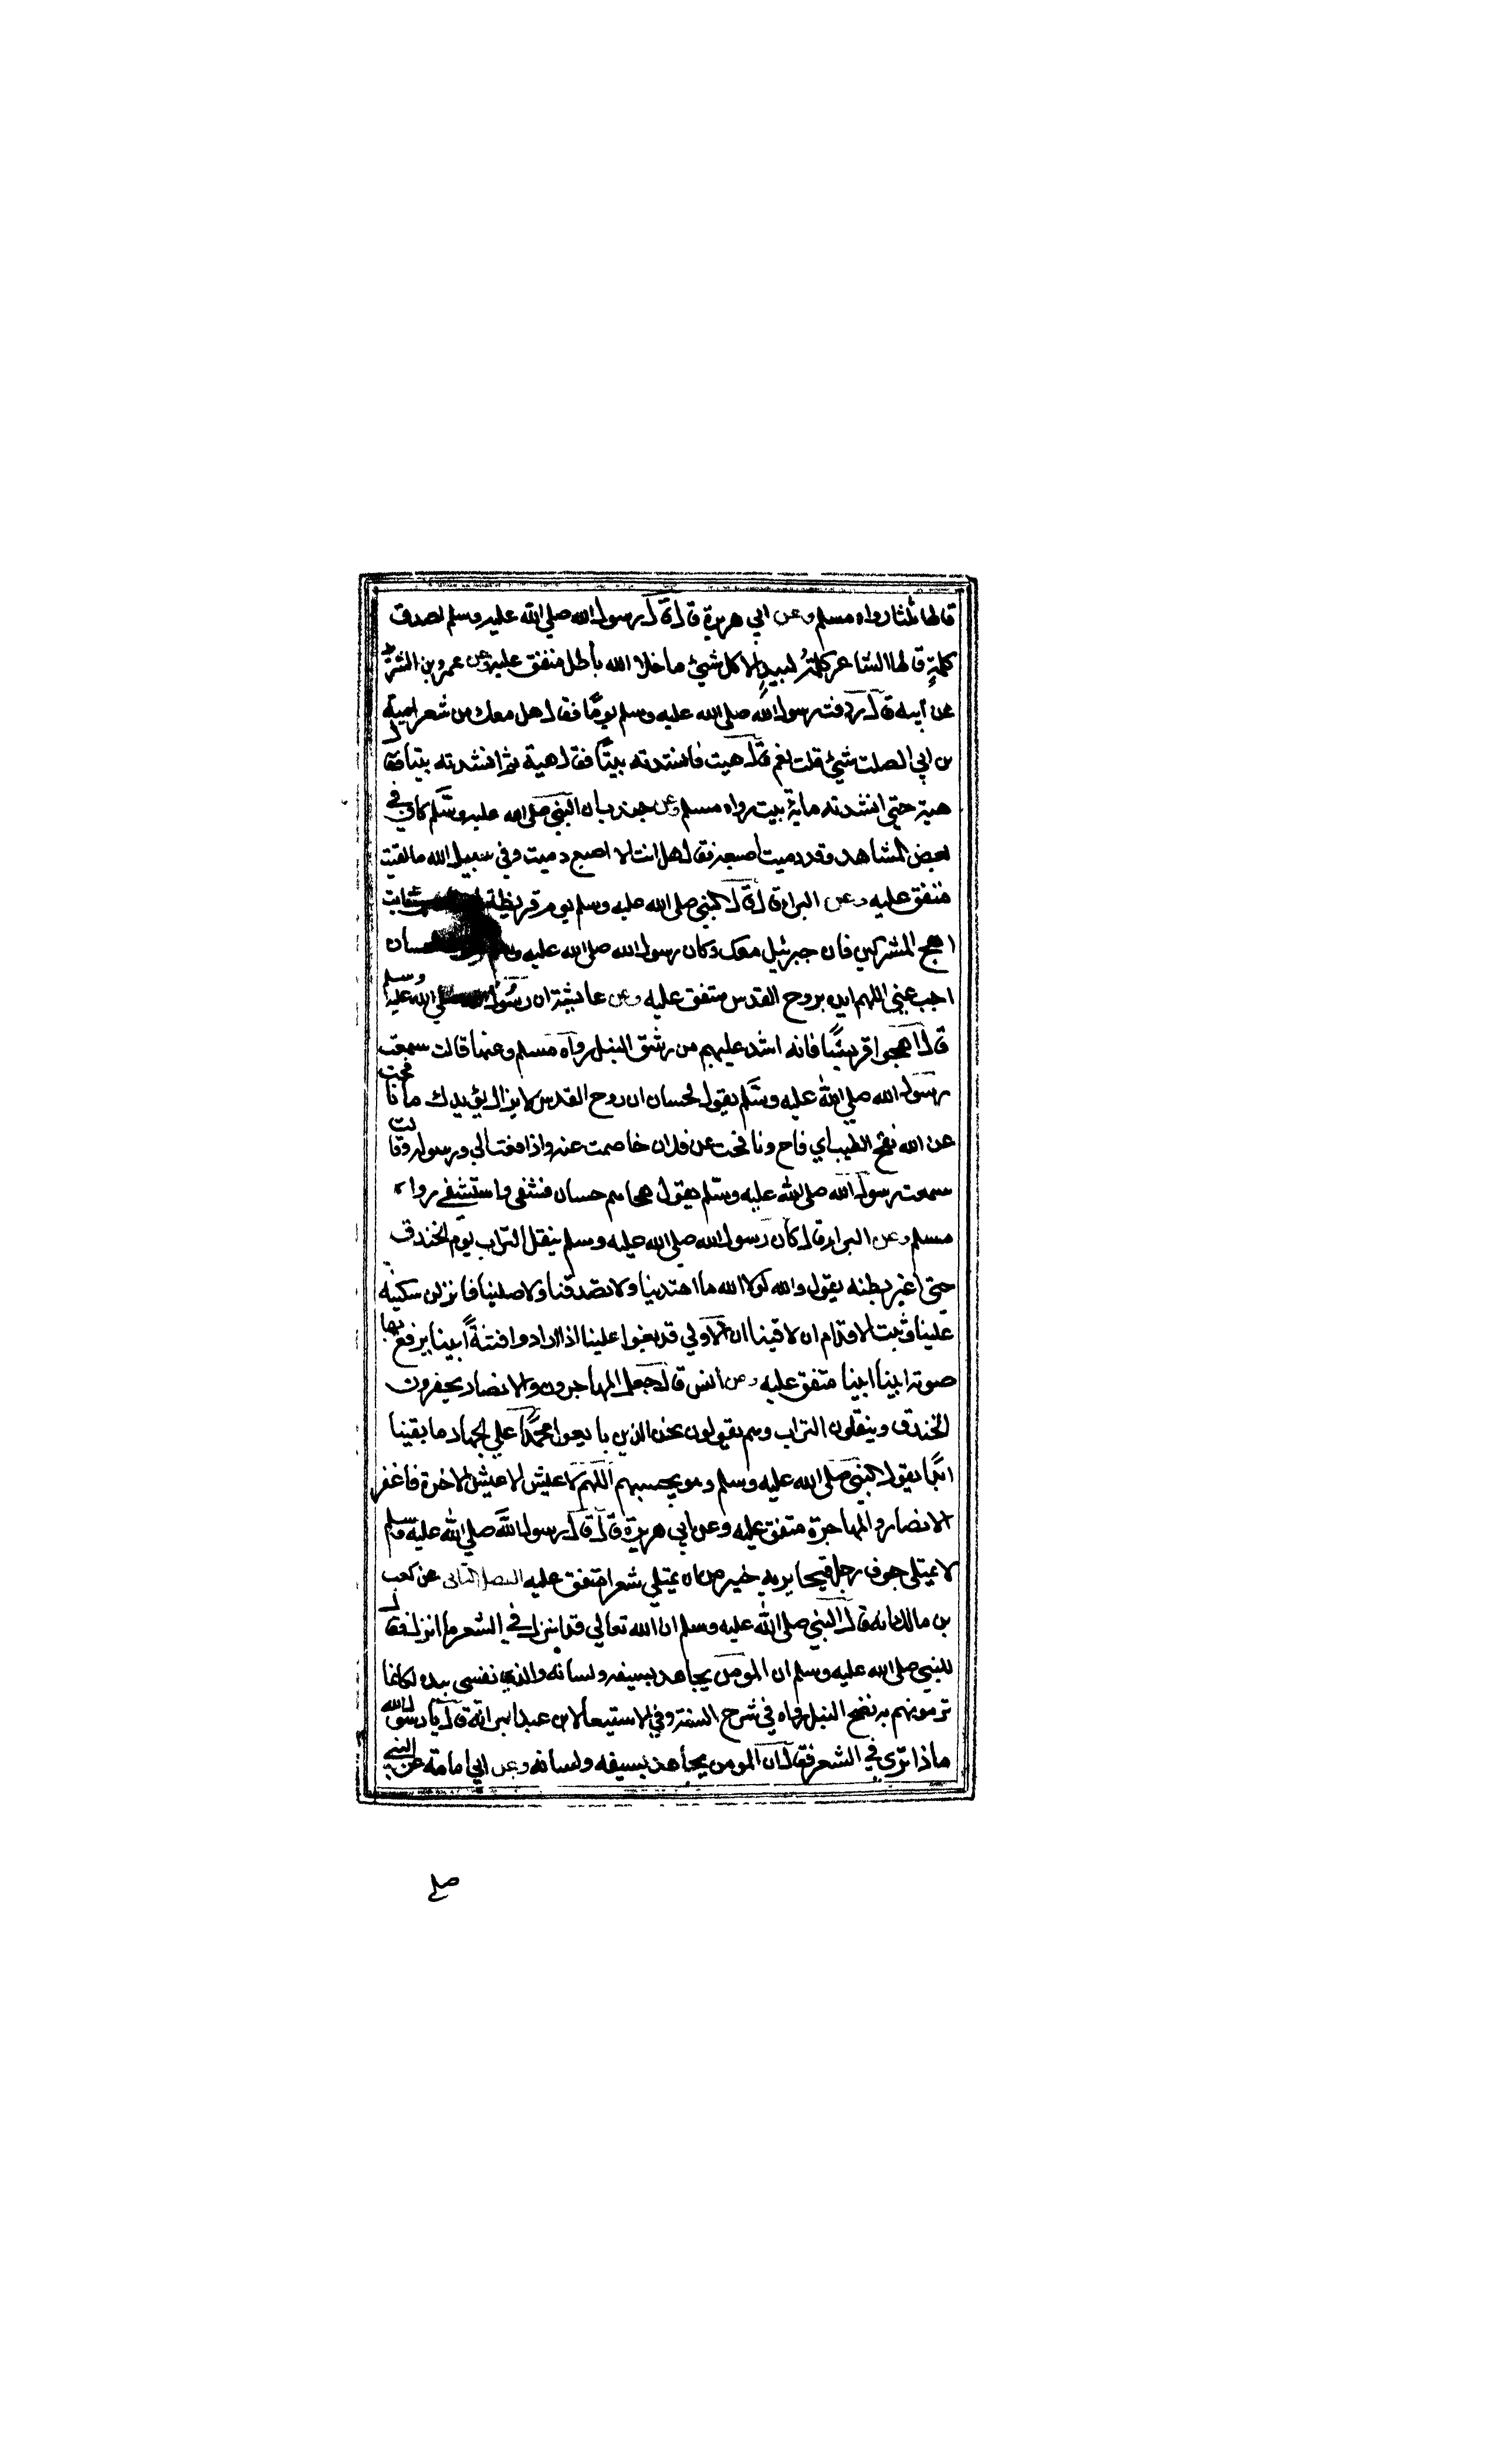 قالها ثلثا رواه مسلم وعن ابي هريرة قال قال رسول الله صلي الله عليه وسلم اصدق
كلمةٍ قالها الشاعر كلمةُ لبيدٍ الا كل شيئ ما خلا الله باطل متفق عليه وعن عمرو بن الشريد
عن ابيه قال ردفت رسول الله صلى الله عليه وسلم يومًا فقال هل معك من شعر امية
بن ابي الصلت شيئ قلت نعم قال هيت فانشدته بيتًا فقال هية ثم انشدته بيتا فقال
هية حتى انشدته ماية بيت رواه مسلم وعن جندب ان النبي صلى الله عليه وسلم كان في
بعض المشاهد وقد دميت اصبعه فقال هل انت الا اصبع دميت وفي سبيل الله ما لقيت
متفق عليه وعن البراء قال قال النبي صلى الله عليه وسلم يوم قريظة ثابت
اهج المشركين فان جبرئيل معك وكان رسول الله صلى الله عليه حسان
اجب عني اللهم ايده بروح القدس متفق عليه وعن عايشة ان رسول الله صلي الله عليه وسلم
قال اهجوا قريشًا فانه اشد عليهم من رشق النبل رواه مسلم وعنها قالت سمعت
رسول الله صلي الله عليه وسلم يقول لحسان ان روح القدس لا يزال يؤيدك ما نافحت
عن الله نفح الطيب اي فاح ونافحت عن فلان خاصمت عنه واذا ورسوله وقالت
سمعت رسول الله صلى الله عليه وسلم يقول هجاهم حسان فشفى واستشفى رواه
مسلم وعن البراء قال كان رسول الله صلى الله عليه وسلم ينقل التراب يوم الخندق
حتى اغبر بطنه يقول والله لولا الله ما اهتدينا ولا تصدقنا ولا صلينا فانزلن سكينة
علينا وثبت الاقدام ان لاقينا ان الاولي قد بغوا علينا اذا ارادوا فتنةً ابينا يرفع بها
صوته ابينا ابينا متفق عليه وعن انس قال جعل المهاجرون والانصار يحفرون
الخندق وينقلون التراب وهم يقولون نحن الذين بايعوا محمدًا علي الجهاد ما بقينا
ابدًا يقول النبي صلى الله عليه وسلم وهو يجيبهم اللهم لا عيش الا عيش الاخرة فاغفر
الانصار والمهاجرة متفق عليه وعن ابي هريرة قال قال رسول الله صلي الله عليه وسلم
لا يمتلى جوف رجل قيحا يريه خير من ان يمتلي شعرا متفق عليه الفصل الثاني عن كعب
بن مالك انه قال للنبي صلى الله عليه وسلم ان الله تعالي قد انزل في الشعر ما انزل فقال
للنبي صلى الله عليه وسلم ان المومن يجاهد بسيفه ولسانه والذي نفسي بيده لكانما
ترمونهم به نضح النبل رواه في شرح السنة وفي الاستيعاب لابن عبد البر انه قال يا رسول الله
ماذا تري في الشعر فقال ان المومن يجاهد بسيفه ولسانه وعن ابي امامة عن النبي
صلى